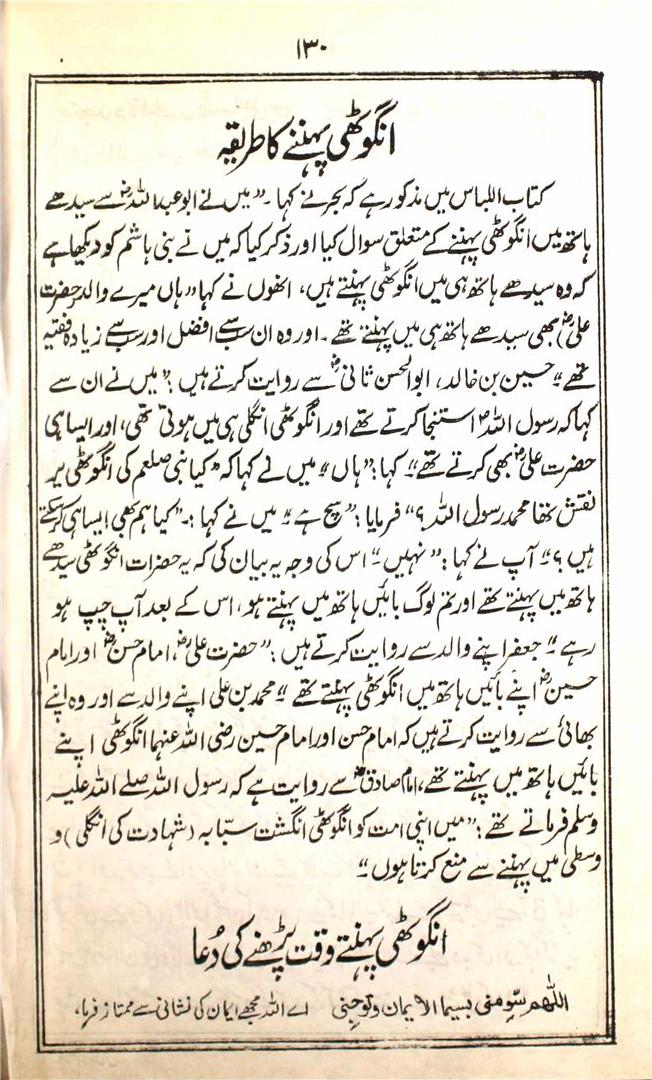 ۱۳۰
انگوٹھی پہننے کا طریقہ
کتاب اللباس میں مذکور ہے کہ بحر نے کہا۔ "میں نے ابو عبد اللہؓ سے سیدھے
ہاتھ میں انگوٹھی پہننے کے متعلق سوال کیا اور ذکر کیا کہ میں نے بنی ہاشم کو دیکھا ہے
کہ وہ سیدھے ہاتھ ہی میں انگوٹھی پہنتے ہیں، انھوں نے کہا "ہاں میرے والد (حضرت
علیؓ) بھی سیدھے ہاتھ ہی میں پہنتے تھے۔ اور وہ ان سب سے افضل اور سب سے زیادہ فقیہ
تھے" حسین بن خالد، ابوالحسن ثانیؓ سے روایت کرتے ہیں: "میں نے ان سے
کہا کہ رسول اللہؐ استنجا کرتے تھے اور انگوٹھی انگلی ہی میں ہوتی تھی، اور ایسا ہی
حضرت علیؓ بھی کرتے تھے" کہا: "ہاں" میں نے کہا کہ "کیا نبی صلعم کی انگوٹھی پر
نقش تھا محمد رسول اللہ؟" فرمایا: "سچ ہے" میں نے کہا:۔ "کیا ہم بھی ایسا ہی کر سکتے
ہیں؟" آپ نے کہا: "نہیں۔" اس کی وجہ یہ بیان کی کہ یہ حضرات انگوٹھی سیدھے
ہاتھ میں پہنتے تھے اور تم لوگ بائیں ہاتھ میں پہنتے ہو، اس کے بعد آپ چپ ہو
رہے" جعفر اپنے والد سے روایت کرتے ہیں: "حضرت علیؓ، امام حسنؓ اور امام
حسینؓ اپنے بائیں ہاتھ میں انگوٹھی پہنتے تھے" محمد بن علی اپنے والد سے اور وہ اپنے
بھائی سے روایت کرتے ہیں کہ امام حسن اور امام حسین رضی اللہ عنہما انگوٹھی اپنے
بائیں ہاتھ میں پہنتے تھے، امام صادقؓ سے روایت ہے کہ رسول اللہ صلے اللہ علیہ
وسلم فرماتے تھے: "میں اپنی امت کو انگوٹھی انگشت سبّابہ (شہادت کی انگلی) و
وسطٰی میں پہننے سے منع کرتا ہوں"
انگوٹھی پہنتے وقت پڑھنے کی دُعا
اللّٰهم سَوِّمنی بسیما الایمان وتوجنی اے اللہ مجھے ایمان کی نشانی سے ممتاز فرما،